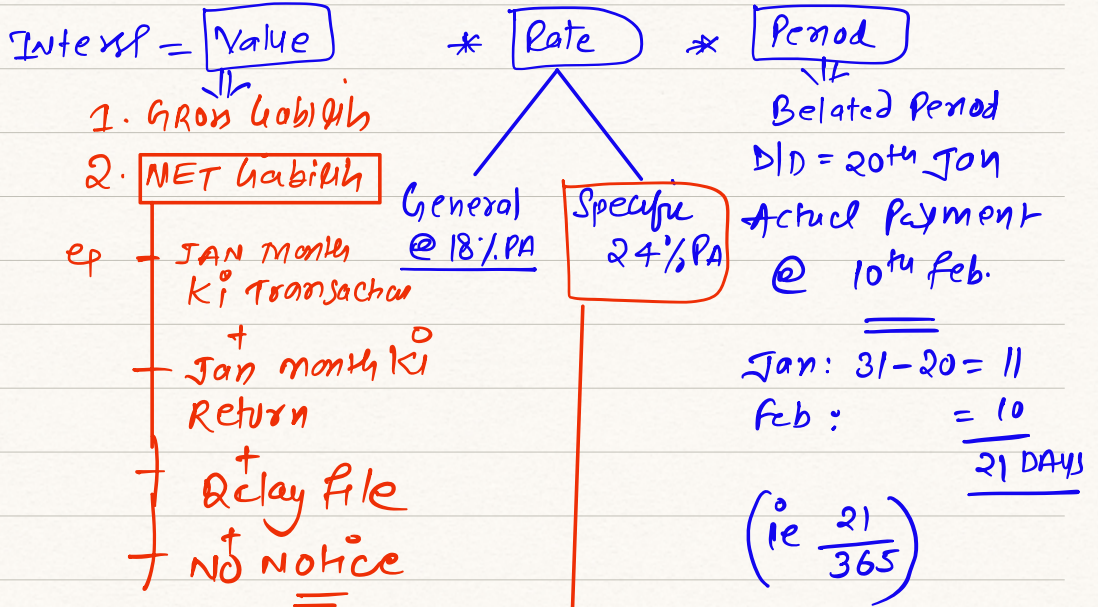 Interest = Value * Rate * Period
1. GROSS Liability
2. NET Liability
eg - JAN Month
Ki Transaction
+
Jan month Ki
Return
+
Delay File
+
No Notice
General
@ 18% PA
Specific
24% PA
Belated Period
D/D = 20th Jan
Actual Payment
@ 10th Feb.
Jan: 31-20 = 11
Feb : = 10
21 DAYS
(ie 21/365)